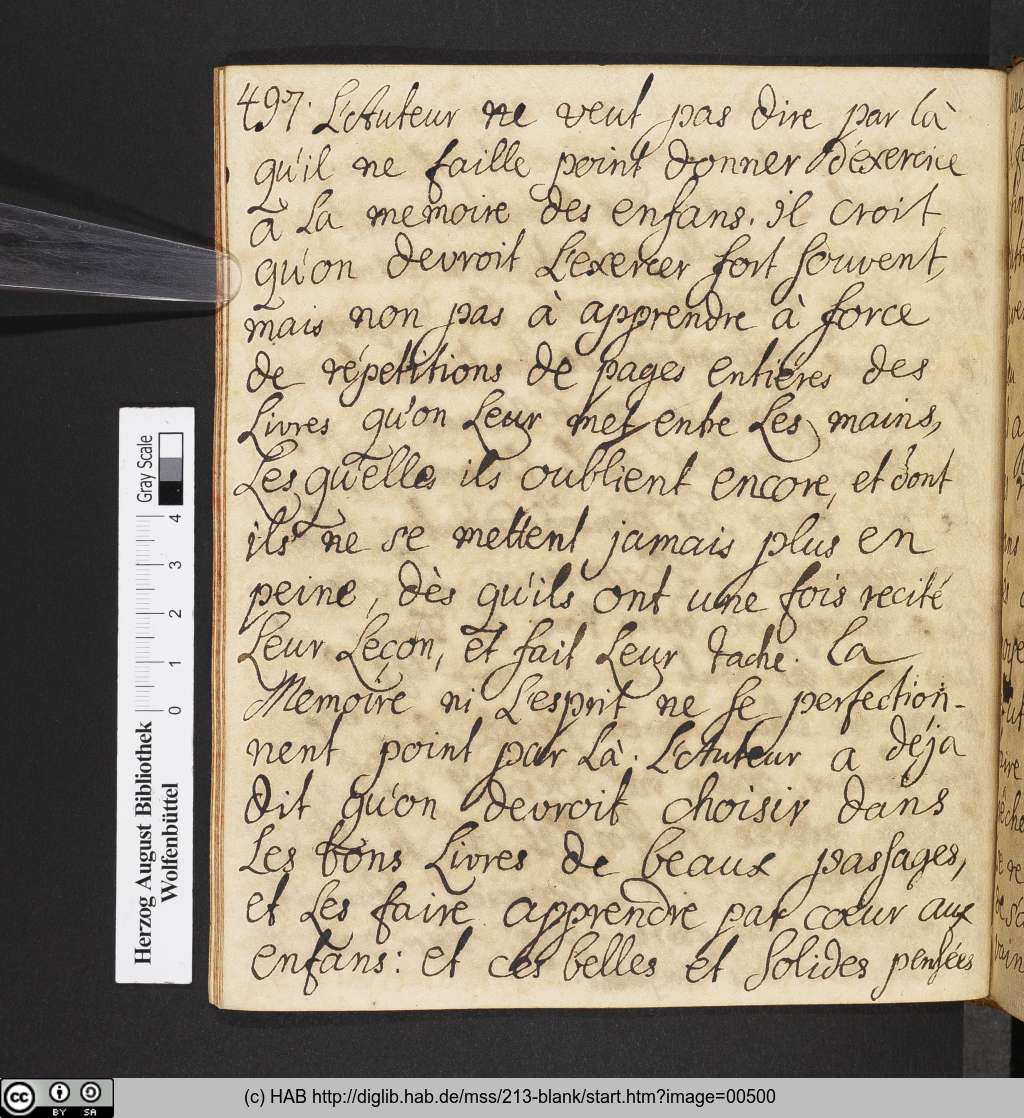 497. L'Auteur ne veut pas dire par là
qu'il ne faille point donner d'exercice
a La memoire des enfans. il croit
qu'on devroit L'exercer fort souvent,
mais non pas à apprendre à force
de répetitions de pages entiéres des
Livres qu'on Leur met entre Les mains,
Les qu'elles ils oublient encore, et dont
ils ne se mettent jamais plus en
peine, dès qu'ils ont une fois recité
Leur Leçon, et fait Leur tache. La
Memoire ni L'esprit ne se perfection-
nent point par Là. L'Auteur a déja
dit qu'on devroit choisir dans
Les bons Livres de beaux passages,
et Les faire apprendre par cœur aux
enfans: et ces belles et solides pensées
Herzog August Bibliothek
Wolfenbüttel
0 1 2 3 4
Gray Scale
cc BY SA
(c) HAB http://diglib.hab.de/mss/213-blank/start.htm?image=00500